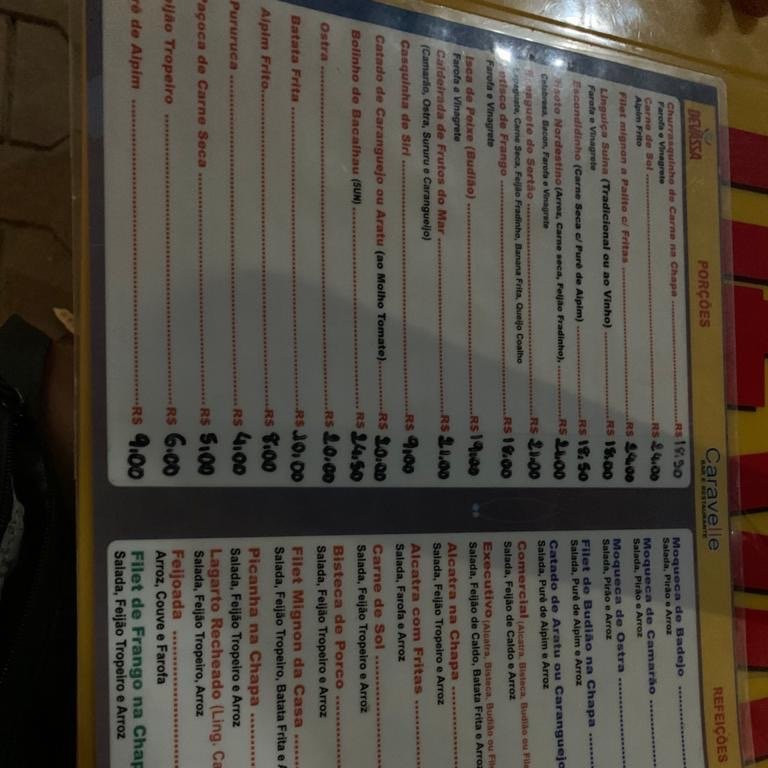 DEVASSA
PORÇÕES
Caravelle
BAR E RESTAURANTE
REFEIÇÕES
Churrasquinho de Carne na Chapa R$ 18.50
Farofa e Vinagrete
Carne de Sol R$ 24.00
Aipim Frito
Filet mignon a Palito c/ Fritas R$ 24.00
Linguiça Suína (Tradicional ou ao Vinho) R$ 18.00
Farofa e Vinagrete
Escondidinho (Carne Seca c/ Purê de Aipim) R$ 18.50
Nordestino (Arroz, Carne seca, Feijão Fradinho), R$
Calabresa, Bacon, Farofa e Vinagrete
do Sertão R$
Carne Seca, Feijão Fradinho, Banana Frita, Queijo Coalho
de Frango R$ 18.00
Farofa e Vinagrete
Isca de Peixe (Budião) R$ 19.00
Farofa e Vinagrete
Caldeirada de Frutos do Mar R$
(Camarão, Ostra, Sururu e Caranguejo)
Casquinha de Siri R$ 9,00
Catado de Caranguejo ou Aratu (ao Molho Tomate) R$ 20.00
Bolinho de Bacalhau (5UN) R$ 24.50
Ostra R$ 20.00
Batata Frita R$ 10,00
Aipim Frito R$ 8.00
Pururuca R$ 4,00
Paçoca de Carne Seca R$ 5,00
eijão Tropeiro R$ 6.00
rê de Aipim R$ 9,00
Moqueca de Badejo
Salada, Pirão e Arroz
Moqueca de Camarão
Salada, Pirão e Arroz
Moqueca de Ostra
Salada, Pirão e Arroz
Filet de Budião na Chapa
Salada, Purê de Aipim e Arroz
Catado de Aratu ou Caranguejo
Salada, Purê de Aipim e Arroz
Comercial (Alcatra, Bisteca, Budião ou File
Salada, Feijão de Caldo e Arroz
Executivo (Alcatra, Bisteca, Budião ou Fil
Salada, Feijão de Caldo, Batata Frita e Arroz
Alcatra na Chapa
Salada, Feijão Tropeiro e Arroz
Alcatra com Fritas
Salada, Farofa e Arroz
Carne de Sol
Salada, Feijão Tropeiro e Arroz
Bisteca de Porco
Salada, Feijão Tropeiro e Arroz
Filet Mignon da Casa
Salada, Feijão Tropeiro, Batata Frita e A
Picanha na Chapa
Salada, Feijão Tropeiro e Arroz
Lagarto Recheado (Ling. Ca
Salada, Feijão Tropeiro, Arroz
Feijoada
Arroz, Couve e Farofa
Filet de Frango na Chap
Salada, Feijão Tropeiro e Arroz